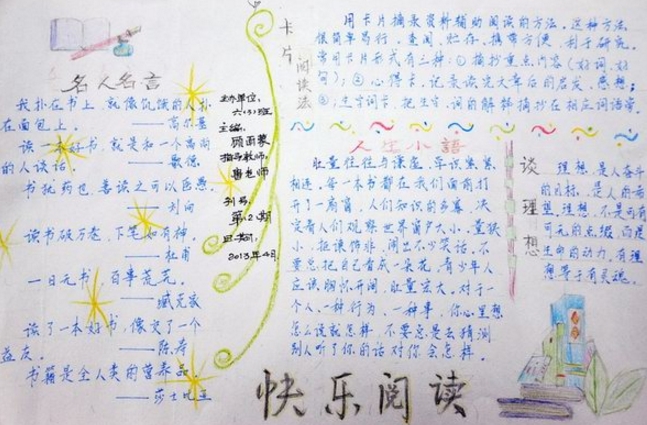 名人名言
我扑在书上，就像饥饿的人扑
在面包上。——高尔基
读一本好书，就是和一个高尚
的人谈话。——歌德
书犹药也，善读之可以医愚
——刘向
读书破万卷，下笔如有神。
——杜甫
一日无书，百事荒芜。
——臧克家
读了一本好书，像交了一个
益友。——陈寿
书籍是全人类的营养品。
——莎士比亚
主办单位：
六(3)班
主编：
顾雨蒙
指导教师：
唐老师
刊号：
第12期
日期：
2013年4月
卡片阅读法
用卡片摘录资料辅助阅读的方法。这种方法
很简单易行，查阅、贮存、携带方便，利于研究。
常用卡片形式有三种：①摘抄重点内容（好词、好
句）；②心得卡，记录读完文章后的启发、感想；
③生字词卡，把生字、词的解释摘抄在相应词语旁。
人生小语
肚量往往与谦虚、学识紧紧
相连。每一本书都在我们面前打
开了一扇窗，人们知识的多寡，决
定着人们观察世界窗户大小。量狭
小，拒谏饰非，闹出不少笑话。不
要总把自己看成一朵花，青少年人
应该胸怀开阔，肚量宏大。对于一
个人，一种行为，一种事，你心里想
怎么说就怎样，不要总是去猜测
别人听了你的话对你会怎样。
谈理想
理想，是人奋斗
的目标，是人的希
望。理想，不是可有
可无的点缀，而是
生命的动力，有理
想等于有灵魂。
快乐阅读